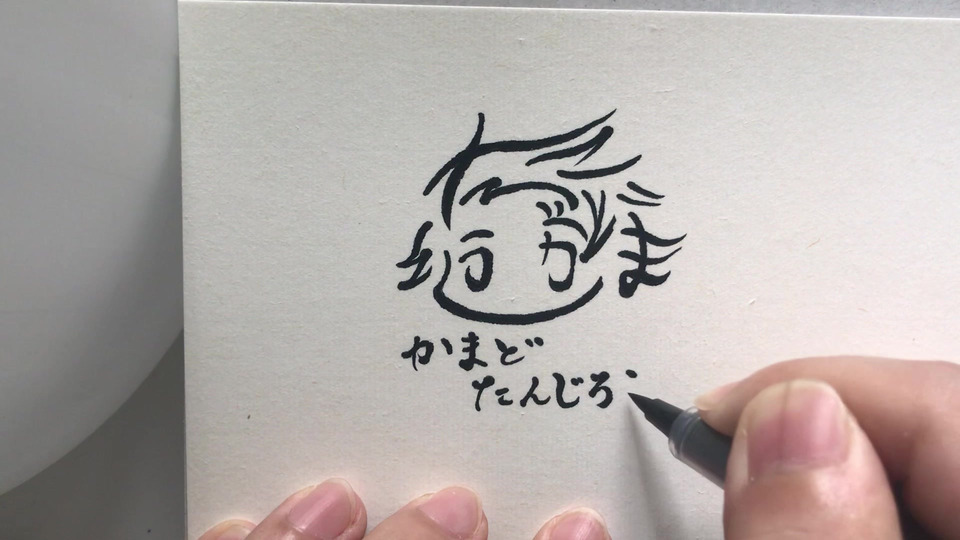 かまど
たんじろ